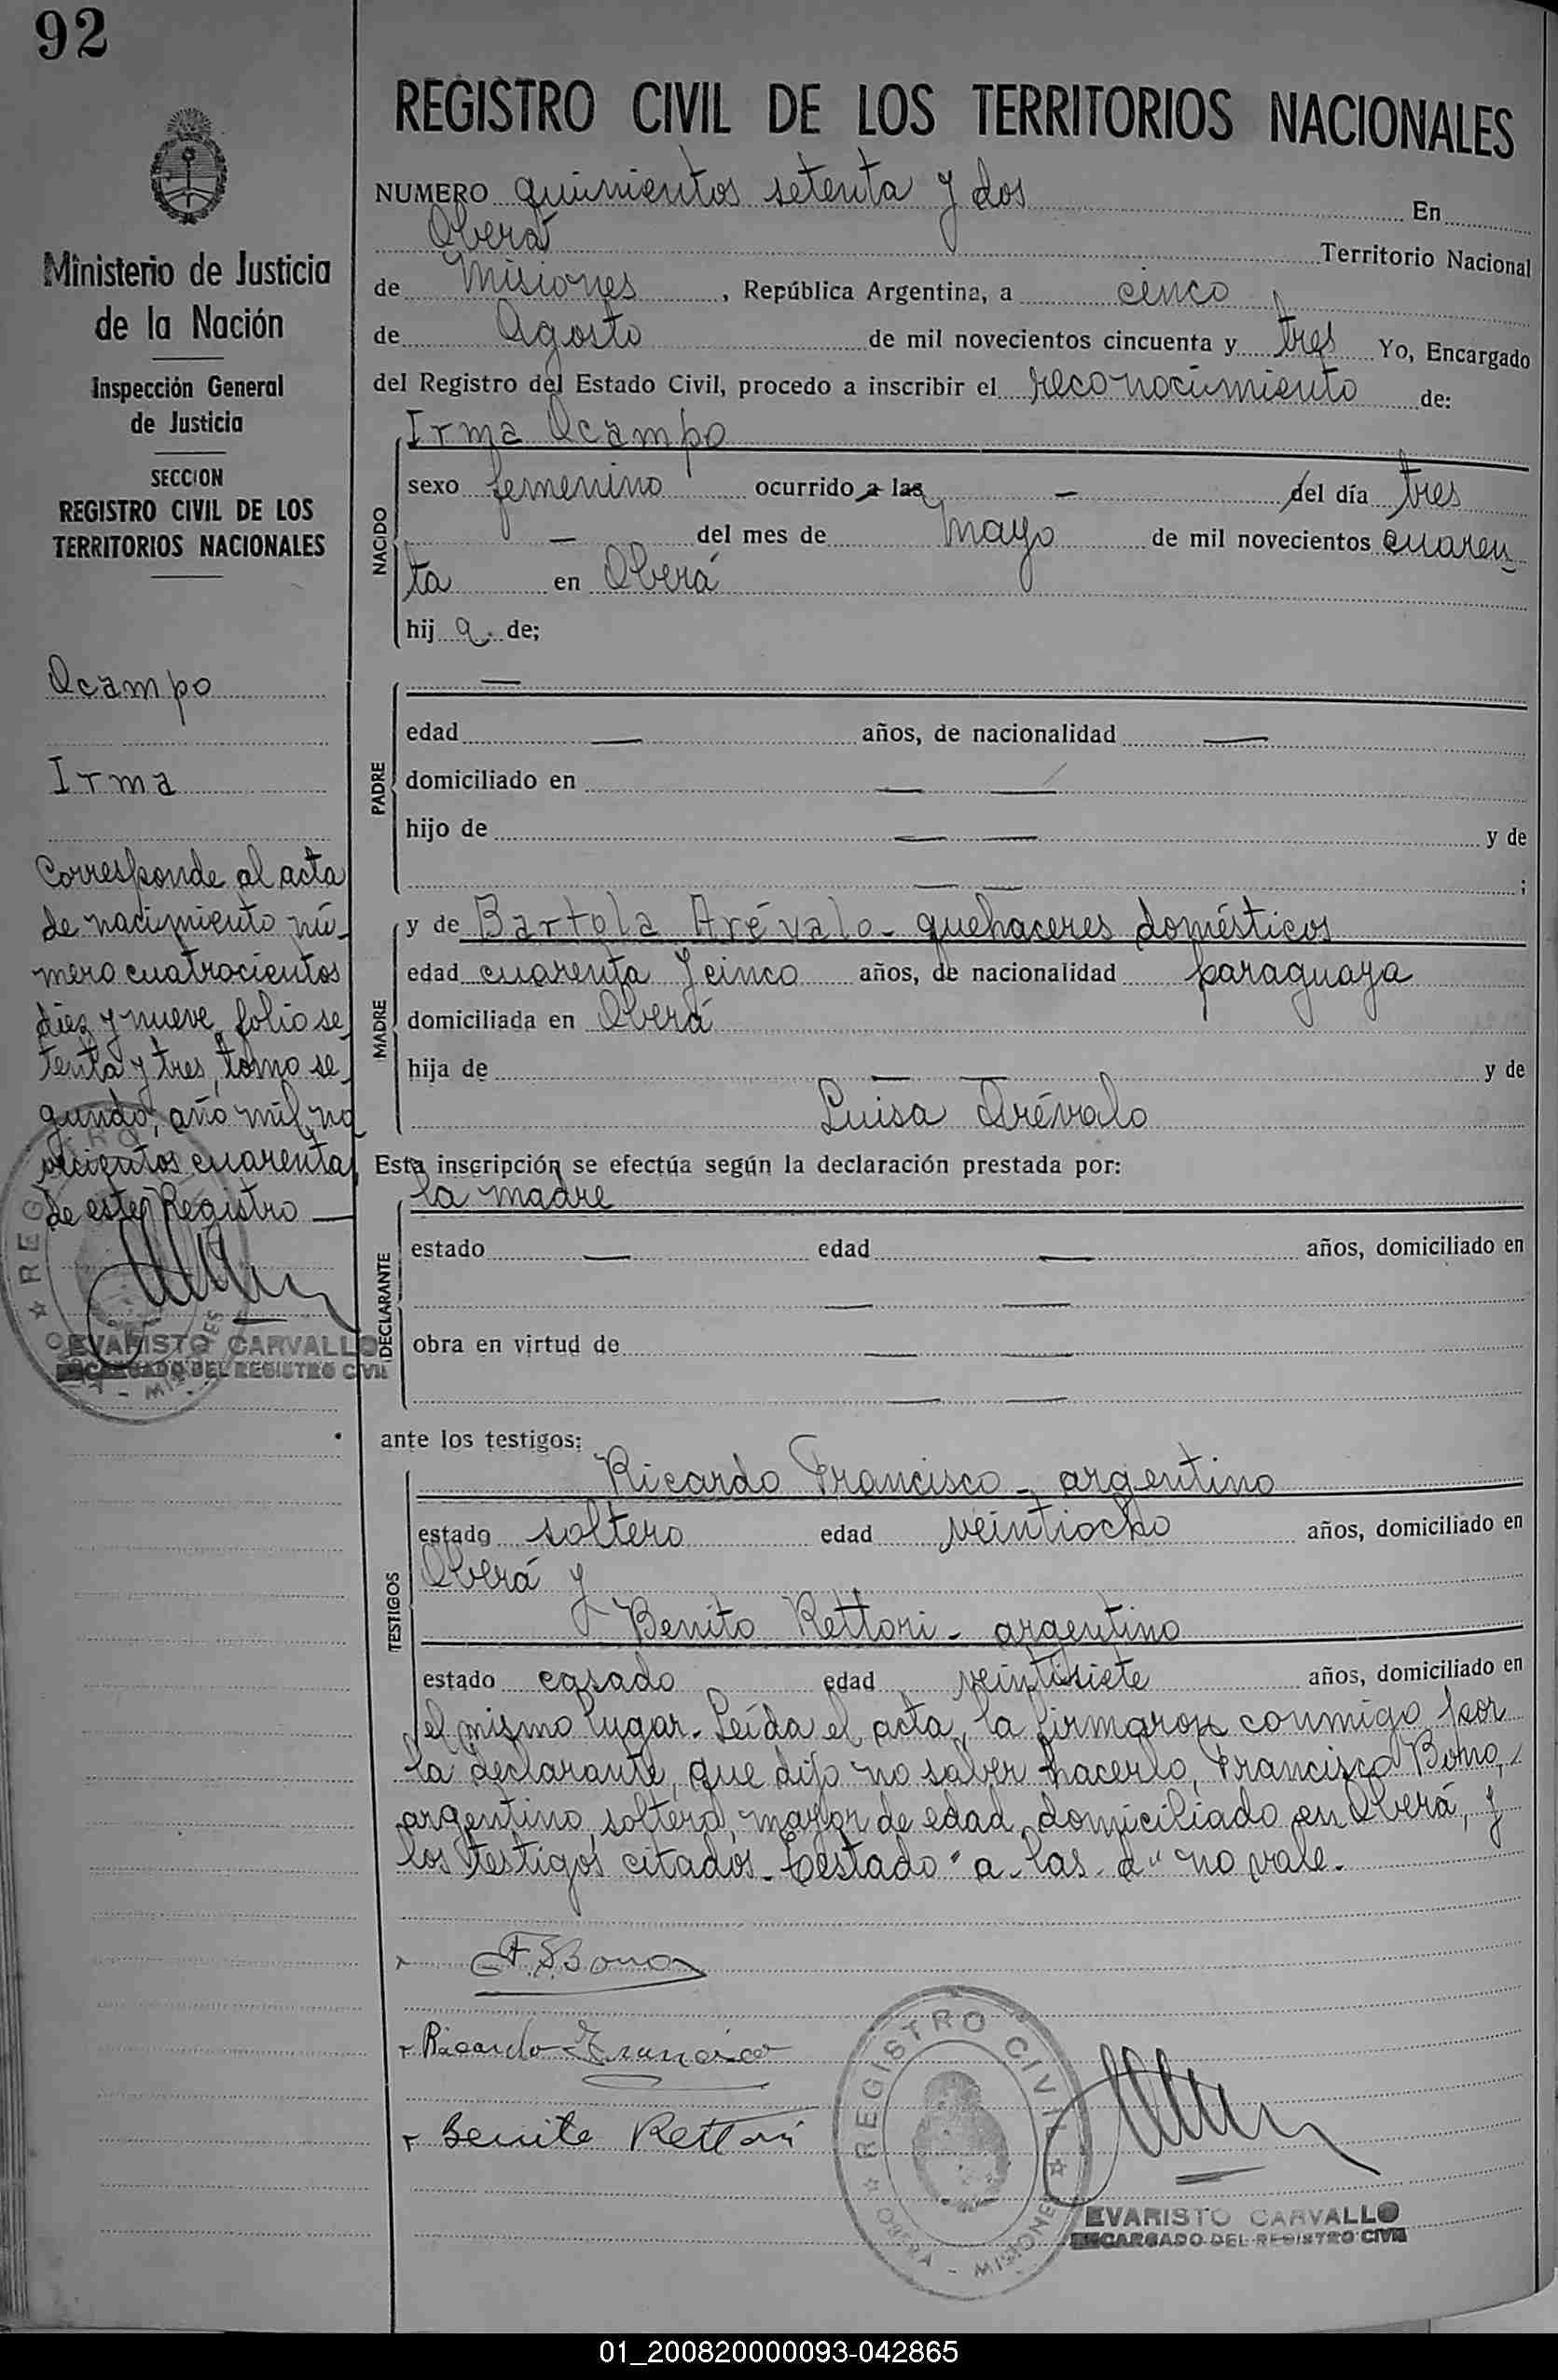 92
Ministerio de Justicia
de la Nación
Inspección General
de Justicia
SECCION
REGISTRO CIVIL DE LOS
TERRITORIOS NACIONALES
Ocampo
Irma
Corresponde al acta
de nacimiento nú-
mero cuatrocientos
diez y nueve, folio se
tenta y tres, tomo se
gundo, año mil no
vecientos cuarenta,
de este Registro —
EVARISTO CARVALLO
ENCARGADO DEL REGISTRO CIVIL
REGISTRO CIVIL DE LOS TERRITORIOS NACIONALES
NUMERO quinientos setenta y dos En
Oberá Territorio Nacional
de Misiones, República Argentina, a cinco
de Agosto de mil novecientos cincuenta y tres Yo, Encargado
del Registro del Estado Civil, procedo a inscribir el reconocimiento de:
Irma Ocampo
NACIDO
sexo femenino ocurrido a las — del día tres
— del mes de mayo de mil novecientos cuaren
ta en Oberá
hij a. de;
PADRE
—
edad — años, de nacionalidad —
domiciliado en — —
hijo de — — y de
— — ;
MADRE
y de Bartola Arévalo - quehaceres domésticos
edad cuarenta y cinco años, de nacionalidad paraguaya
domiciliada en Oberá
hija de — — y de
Luisa Arévalo
Esta inscripción se efectúa según la declaración prestada por:
DECLARANTE
la madre
estado — edad — años, domiciliado en
— —
obra en virtud de — —
— —
ante los testigos:
TESTIGOS
Ricardo Francisco - argentino
estado soltero edad veintiocho años, domiciliado en
Oberá y
Benito Rettori - argentino
estado casado edad veintisiete años, domiciliado en
el mismo lugar. Leída el acta, la firmaron conmigo por
la declarante, que dijo no saber hacerlo, Francisco Bono,
argentino, soltero, mayor de edad, domiciliado en Oberá, y
los testigos citados. Testado "a - las - d" no vale.
F. S. Bono
Ricardo Francisco
Benito Rettori
REGISTRO CIVIL
OBERA - MISIONES
EVARISTO CARVALLO
ENCARGADO DEL REGISTRO CIVIL
01_200820000093-042865